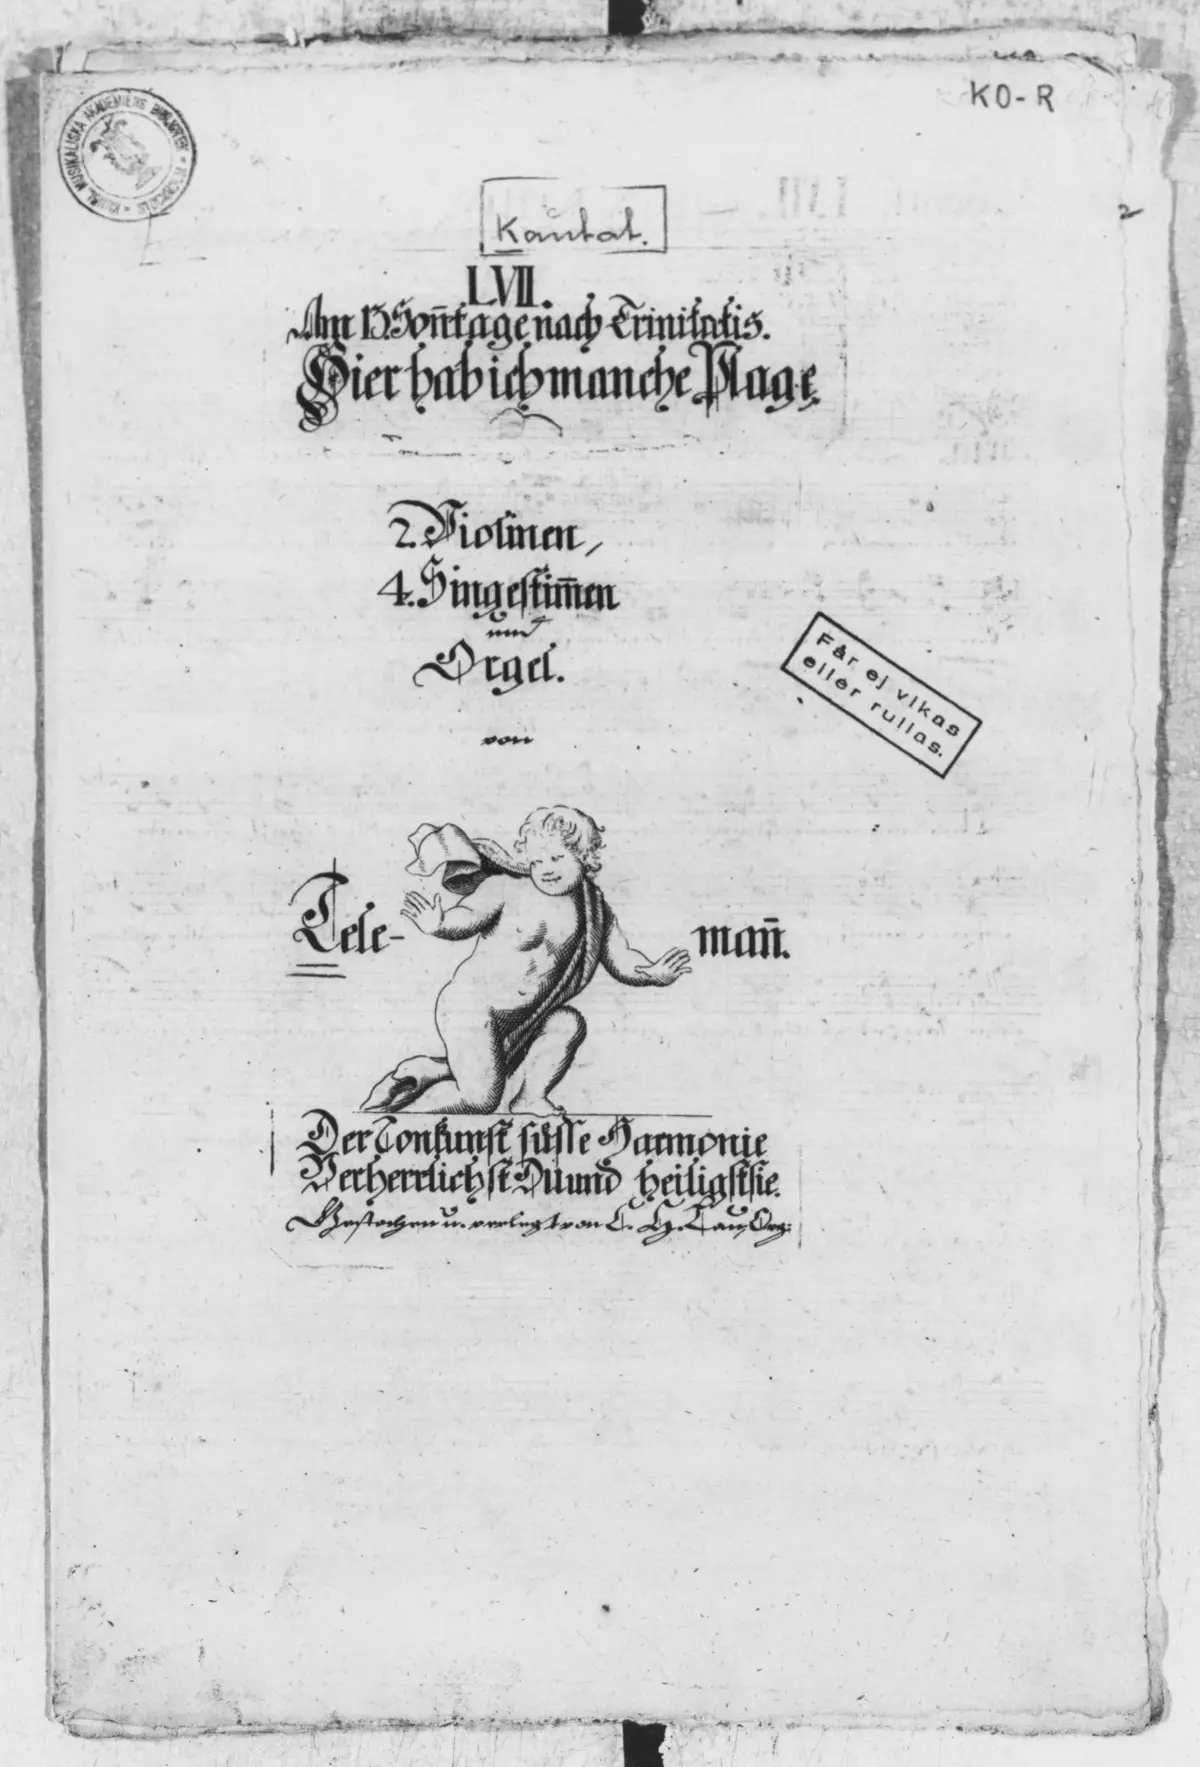 KUNGL. MUSIKALISKA AKADEMIENS BIBLIOTEK * STOCKHOLM *
KO-R
2
Kantat.
LVII.
Am 13. Son̄tage nach Trinitatis.
Hier hab ich manche Plage.
2. Violinen,
4. Singestim̄en
und
Orgel.
von
Får ej vikas
eller rullas.
Tele- man̄.
Der Tonkunst süsse Harmonie
Verherrlichst Du und heiligst sie.
Gestochen u. verlegt von C. H. Lau, Org: